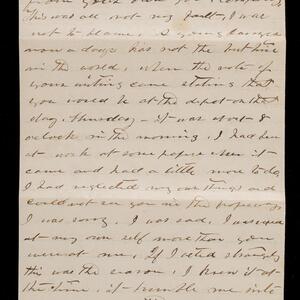 from yours when you
This was all not my fault, I was
not to blame, A young lawyer
now a days has not the best time
in the world, when the note of
your writing came stating that
you would be at the depot on that
day, Thursday — it was about 8
o'clock in the morning, I had been
at work at some papers when it
came and had a little more to do,
I had neglected my own things and
could not see you in the
I was sorry, I was sad, I was
at my own self more than you
were at me, If I acted strangely
this was the reason, I knew it at
the time, it me into